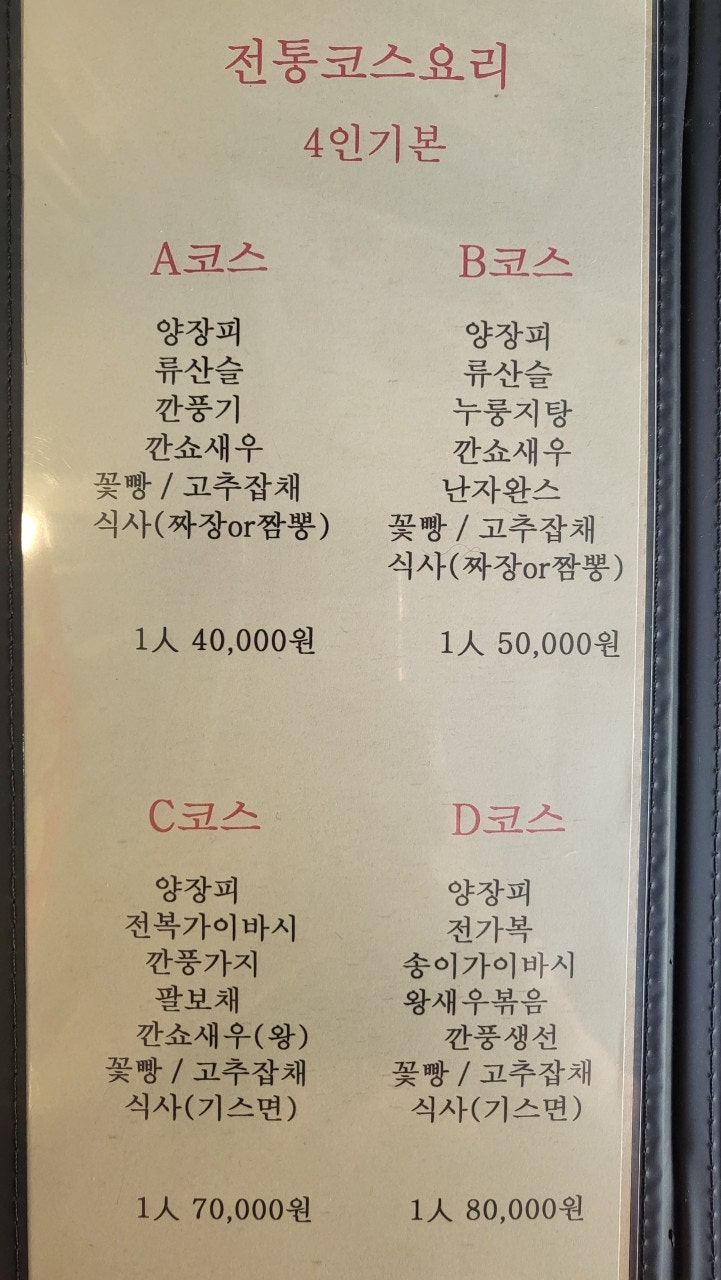 전통코스요리
4인기본
A코스
양장피
류산슬
깐풍기
깐쇼새우
꽃빵 / 고추잡채
식사(짜장or짬뽕)
1人 40,000원
B코스
양장피
류산슬
누룽지탕
깐쇼새우
난자완스
꽃빵 / 고추잡채
식사(짜장or짬뽕)
1人 50,000원
C코스
양장피
전복가이바시
깐풍가지
팔보채
깐쇼새우(왕)
꽃빵 / 고추잡채
식사(기스면)
1人 70,000원
D코스
양장피
전가복
송이가이바시
왕새우볶음
깐풍생선
꽃빵 / 고추잡채
식사(기스면)
1人 80,000원